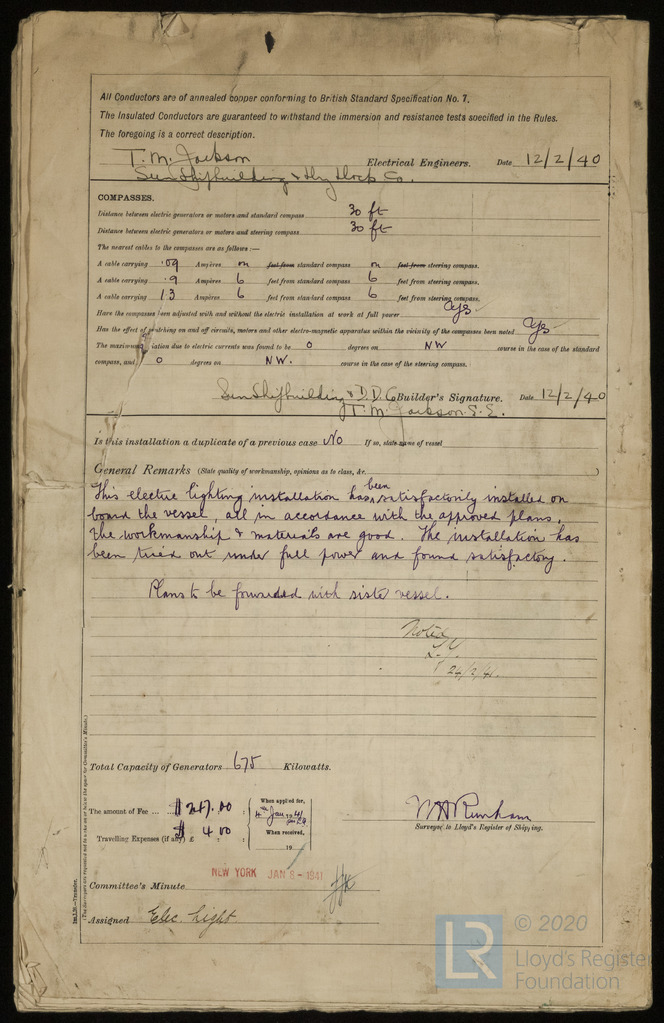 All Conductors are of annealed copper conforming to British Standard Specification No. 7.
The Insulated Conductors are guaranteed to withstand the immersion and resistance tests specified in the Rules.
The foregoing is a correct description.
T. M. Jackson Electrical Engineers. Date 12/2/40
Sun Shipbuilding & Dry Dock Co.
COMPASSES.
Distance between electric generators or motors and standard compass 30 ft
Distance between electric generators or motors and steering compass 30 ft
The nearest cables to the compasses are as follows:—
A cable carrying .09 Ampères on feet from standard compass on feet from steering compass.
A cable carrying .9 Ampères 6 feet from standard compass 6 feet from steering compass.
A cable carrying 13 Ampères 6 feet from standard compass 6 feet from steering compass.
Have the compasses been adjusted with and without the electric installation at work at full power Yes
Has the effect of switching on and off circuits, motors and other electro-magnetic apparatus within the vicinity of the compasses been noted Yes
The maximum deviation due to electric currents was found to be 0 degrees on NW course in the case of the standard
compass, and 0 degrees on NW. course in the case of the steering compass.
Sun Shipbuilding & D. D. Co Builder's Signature. Date 12/2/40
T. M. Jackson E. E.
Is this installation a duplicate of a previous case No If so, state name of vessel
General Remarks (State quality of workmanship, opinions as to class, &c.)
This electric lighting installation has been satisfactorily installed on
board the vessel, all in accordance with the approved plans,
the workmanship & materials are good. The installation has
been tried out under full power and found satisfactory.
Plans to be forwarded with sister vessel.
Noted
24/2/41
Total Capacity of Generators 675 Kilowatts.
The amount of Fee ... $ 247.00
When applied for,
4th Jan 1941
Travelling Expenses (if any) £ $ 4.00
When received,
19
Surveyor to Lloyd's Register of Shipping.
NEW YORK JAN 8 - 1941
Committee's Minute
Assigned Elec. Light
Im.1.28.—Transfer.
(The Surveyors are requested not to write on or below the space for Committee's Minute.)
© 2020
LR
Lloyd's Register
Foundation